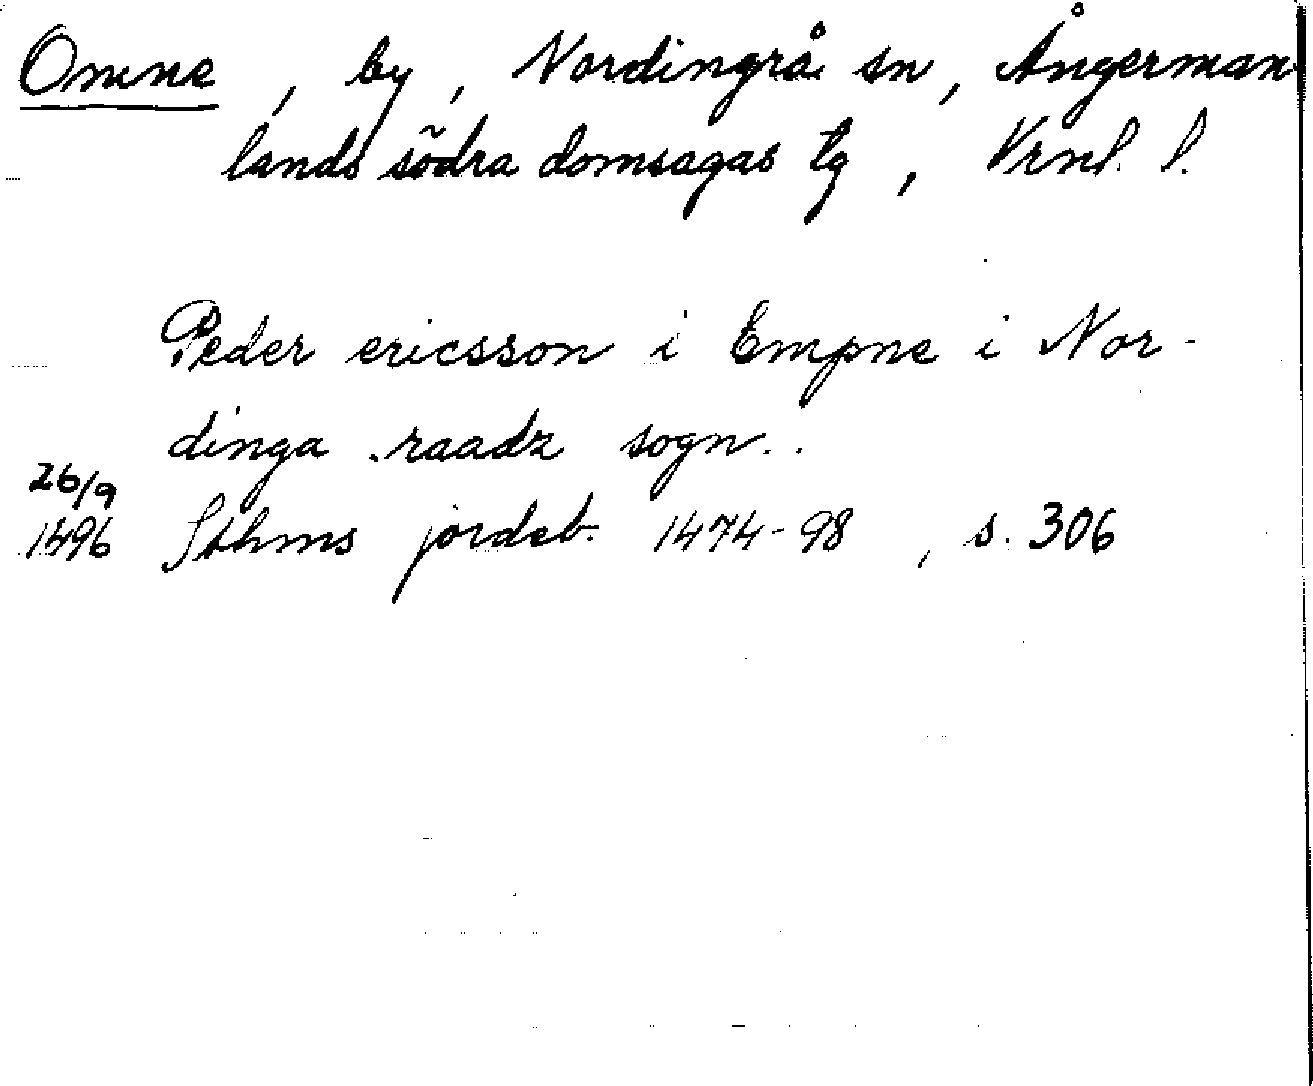 Omne, by, Nordingrå sn, Ångerman
lands södra domsagas tg, Vrnl. l.
Peder ericsson i Empne i Nor-
dinga raadz sogn..
26/9
1496 Sthms jordeb. 1474-98, s. 306